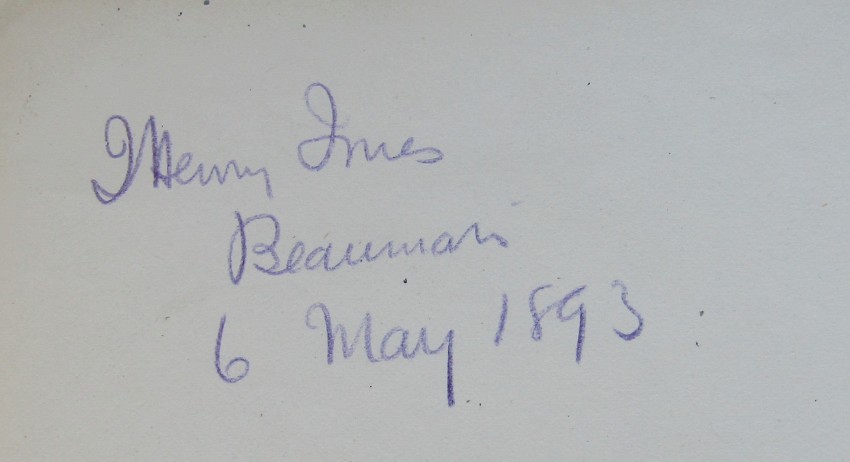 J Henry Innes
Beaumaris
6 May 1893